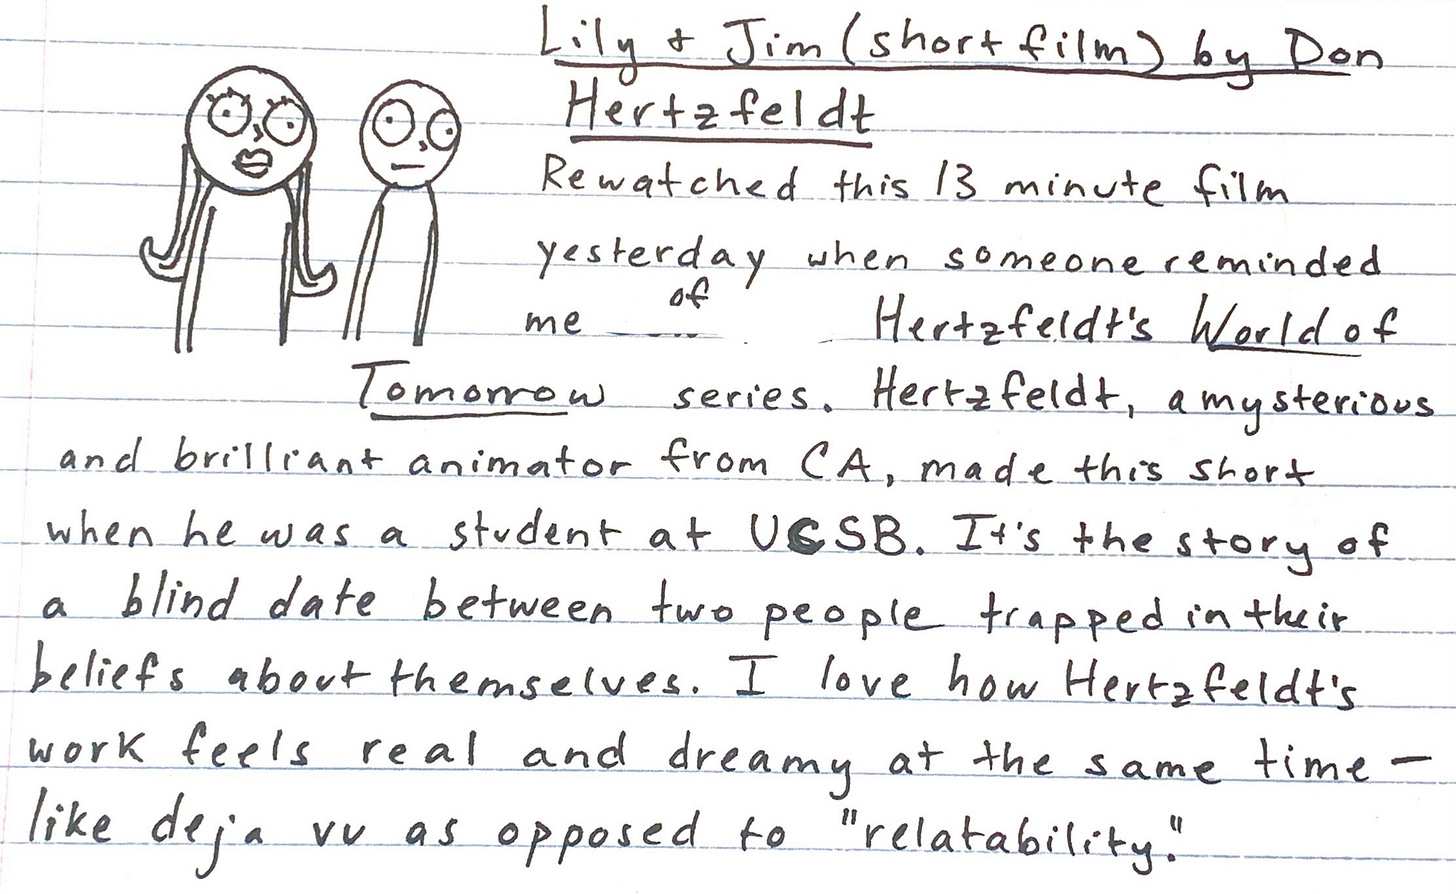 Lily + Jim (short film) by Don
Hertzfeldt
Rewatched this 13 minute film
yesterday when someone reminded
me of Hertzfeldt's World of
Tomorrow series. Hertzfeldt, a mysterious
and brilliant animator from CA, made this short
when he was a student at UCSB. It's the story of
a blind date between two people trapped in their
beliefs about themselves. I love how Hertzfeldt's
work feels real and dreamy at the same time —
like deja vu as opposed to "relatability."